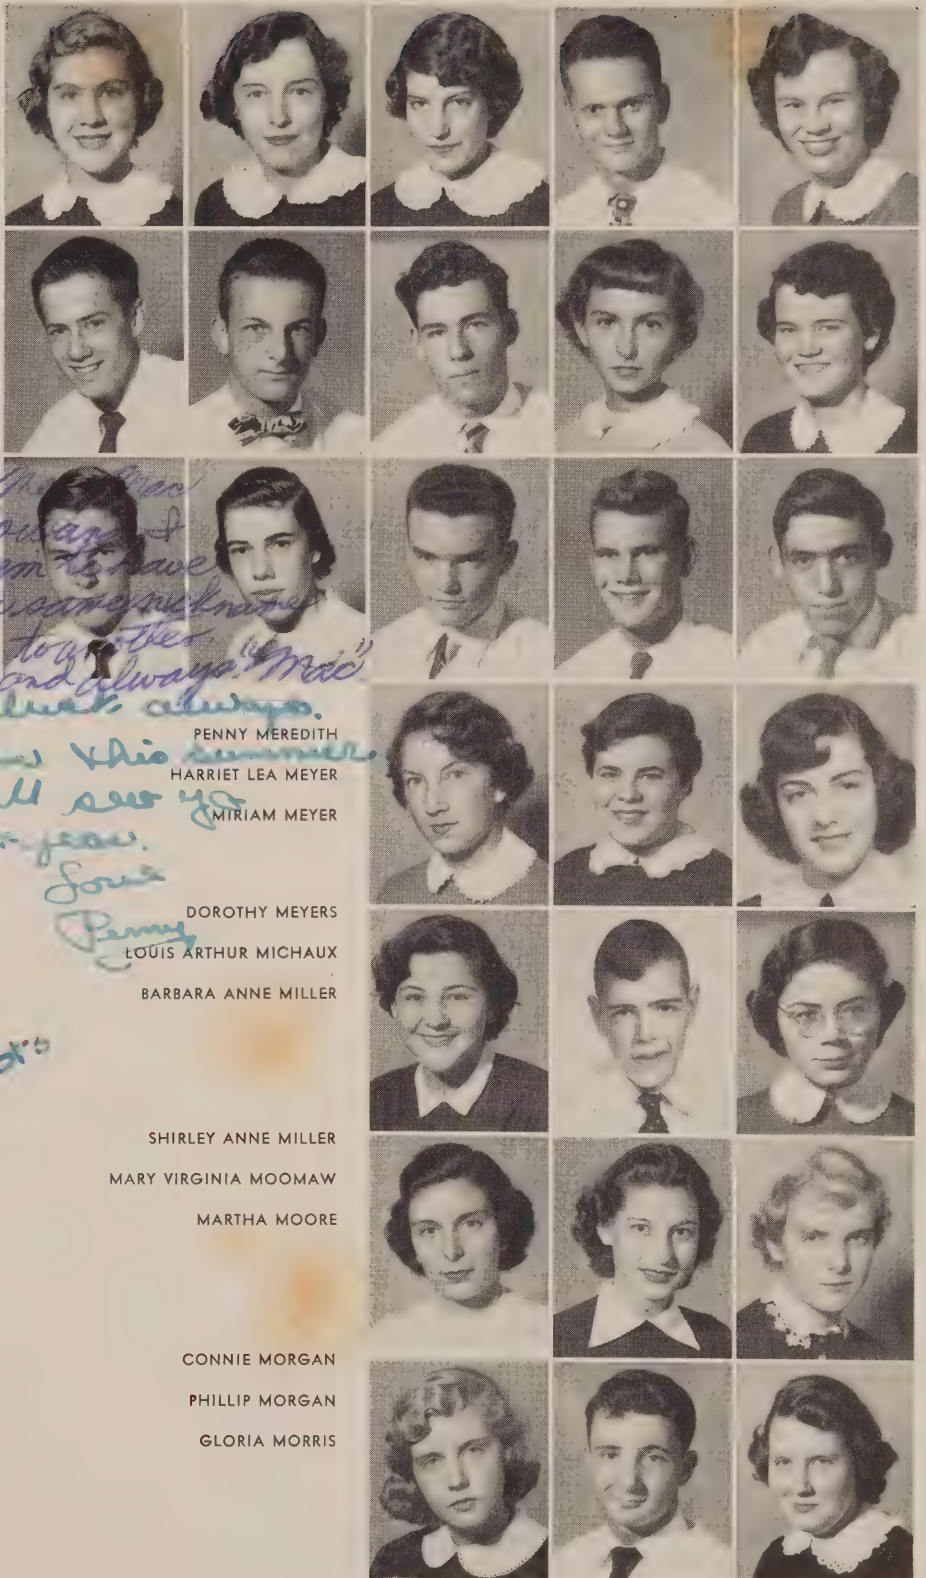 Mac
I
have
same nickname
to another
and always "Mac"
always.
this summer
PENNY MEREDITH
HARRIET LEA MEYER
see ya
MIRIAM MEYER
year.
Love
Penny
DOROTHY MEYERS
LOUIS ARTHUR MICHAUX
BARBARA ANNE MILLER
SHIRLEY ANNE MILLER
MARY VIRGINIA MOOMAW
MARTHA MOORE
CONNIE MORGAN
PHILLIP MORGAN
GLORIA MORRIS